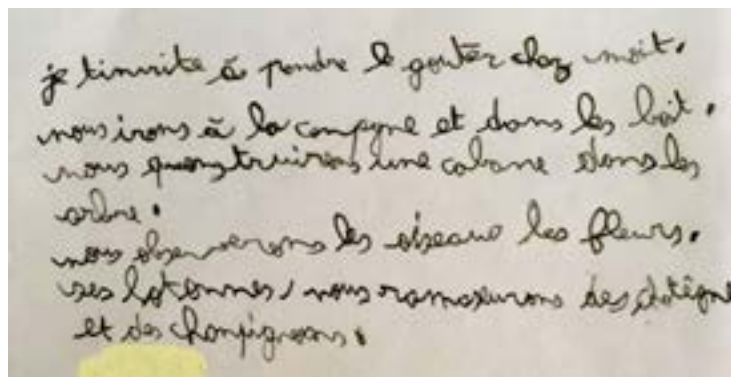 je tinvite à pendre le goûter chez moit.
nous irons à la campagne et dans les boit.
nous quonstruirons une cabane dans les
arbre.
nous observerons les oiseaue les fleurs.
ses lotonnes, nous ramaseurons des châtêgne
et des champignons.